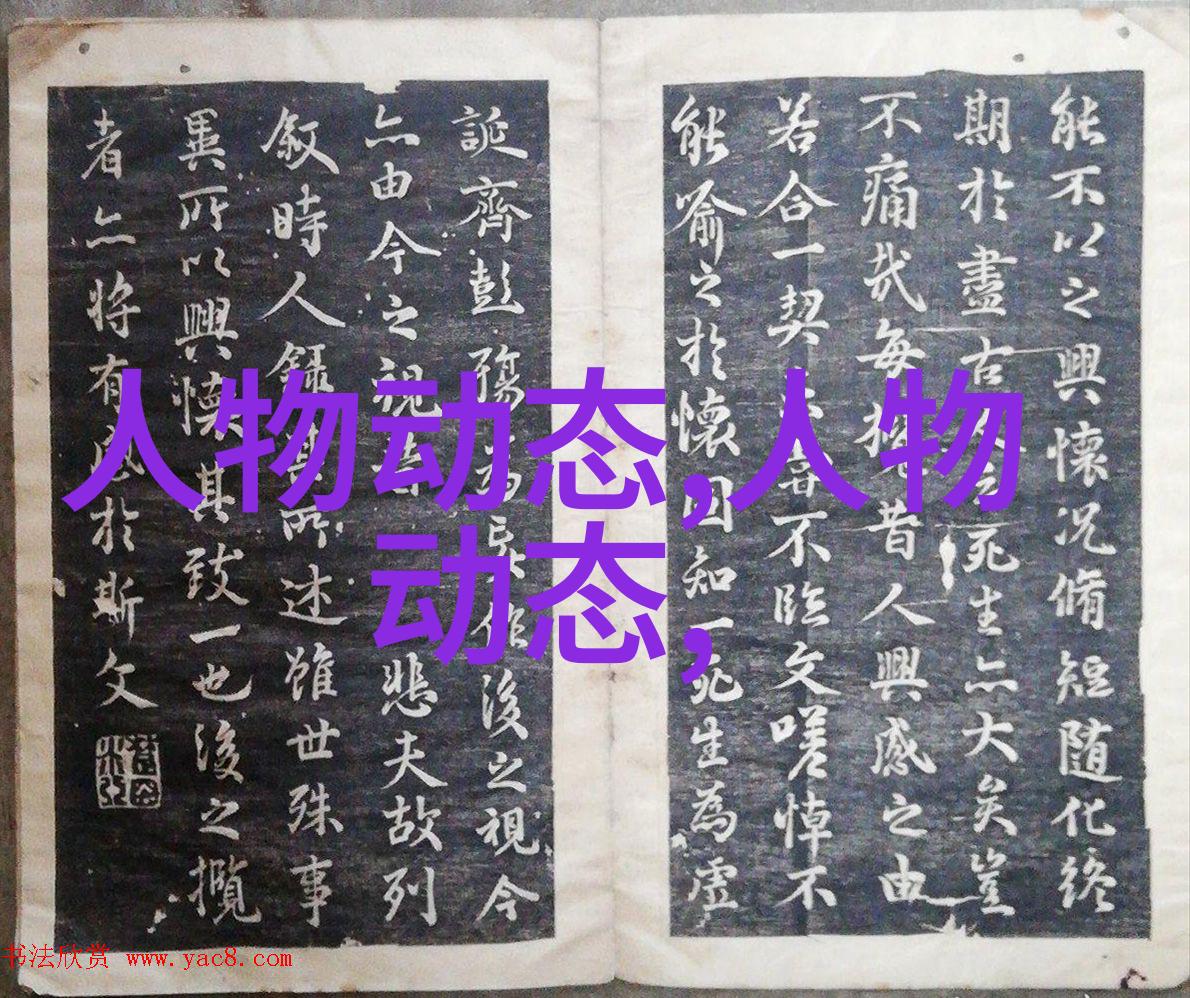 能不以之興懷況脩短随化終
期於盡古人云死生亦大矣豈
不痛哉每攬昔人興感之由
若合一契未甞不臨文嗟悼不
能喻之於懷固知一死生為虛
誕齊彭殤為妄作後之視今
亦由今之視昔悲夫故列
敘時人録其所述雖世殊事
異所以興懷其致一也後之攬
者亦将有感於斯文
人物动态,人物
动态,
书法欣赏 www.yac8.com